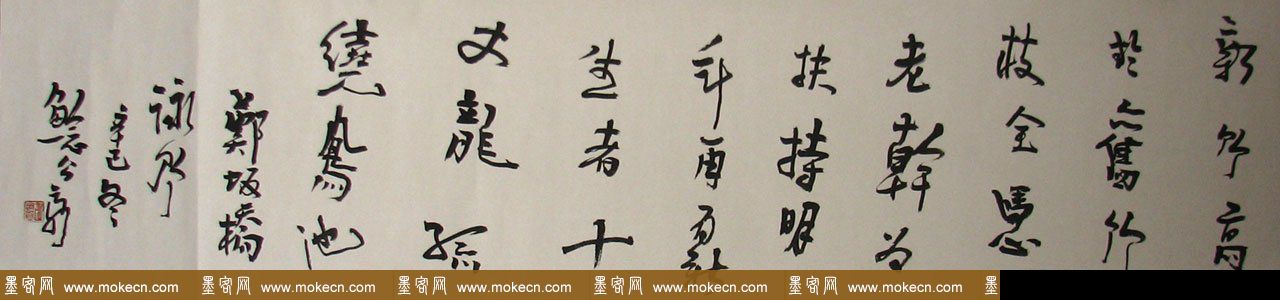 新竹高
於舊竹
枝全憑
老幹为
扶持明
年再有新
生者十
丈龍孫
繞鳳池
鄭板橋
詠竹
辛巳冬
墨客网 www.mokecn.com 墨客网 www.mokecn.com 墨客网 www.mokecn.com 墨客网 www.mokecn.com 墨客网 www.mokecn.com